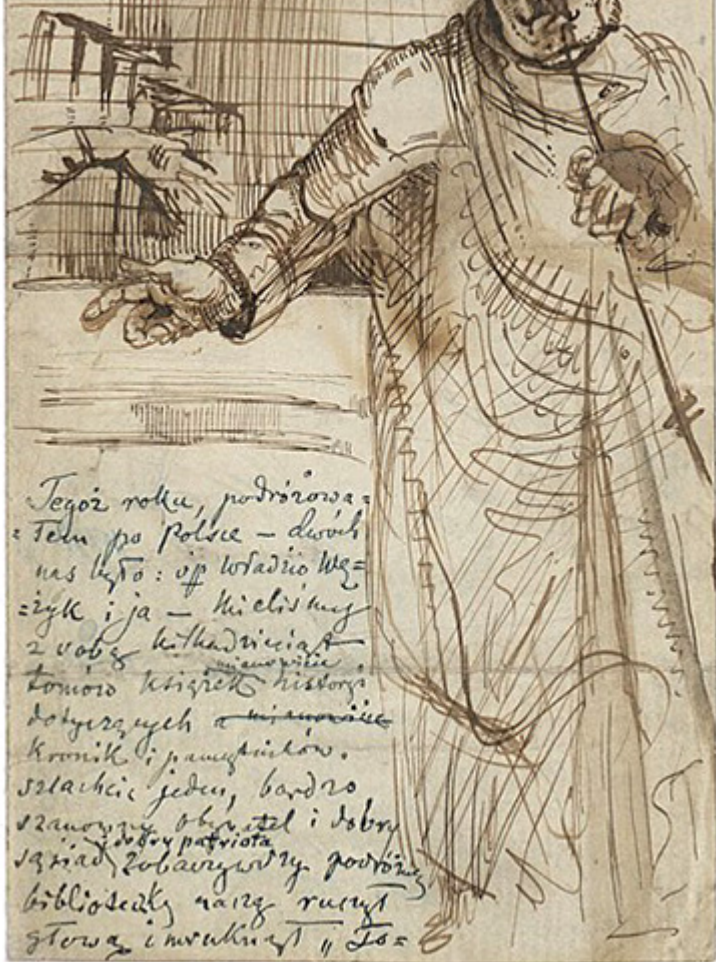 Tegoż roku, podróżowa=
=łem po Polsce – dwóch
nas było: śp Władzio Wę=
=żyk i ja – Mieliśmy
z sobą kilkadziesiąt
mianowicie
tomów książek historyi
dotyczących a mianowicie
kronik i pamiętników.
szlachcic jeden, bardzo
szanowny obywatel i dobry
i dobry patriota
sąsiad zobaczywszy podróżną
biblioteczkę naszą ruszył
głową i mruknął „To=